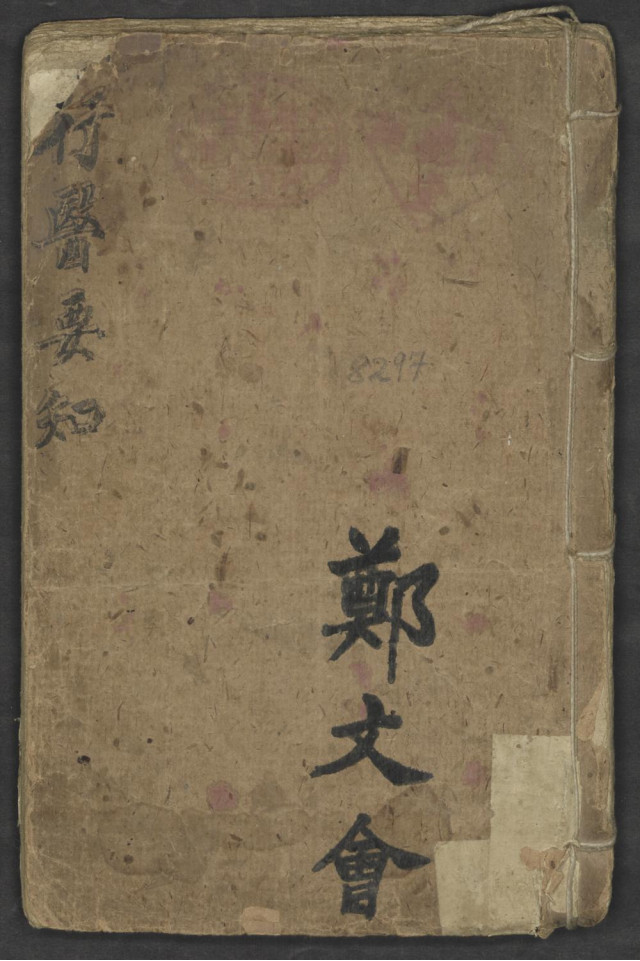 行醫要知
8297
鄭文會